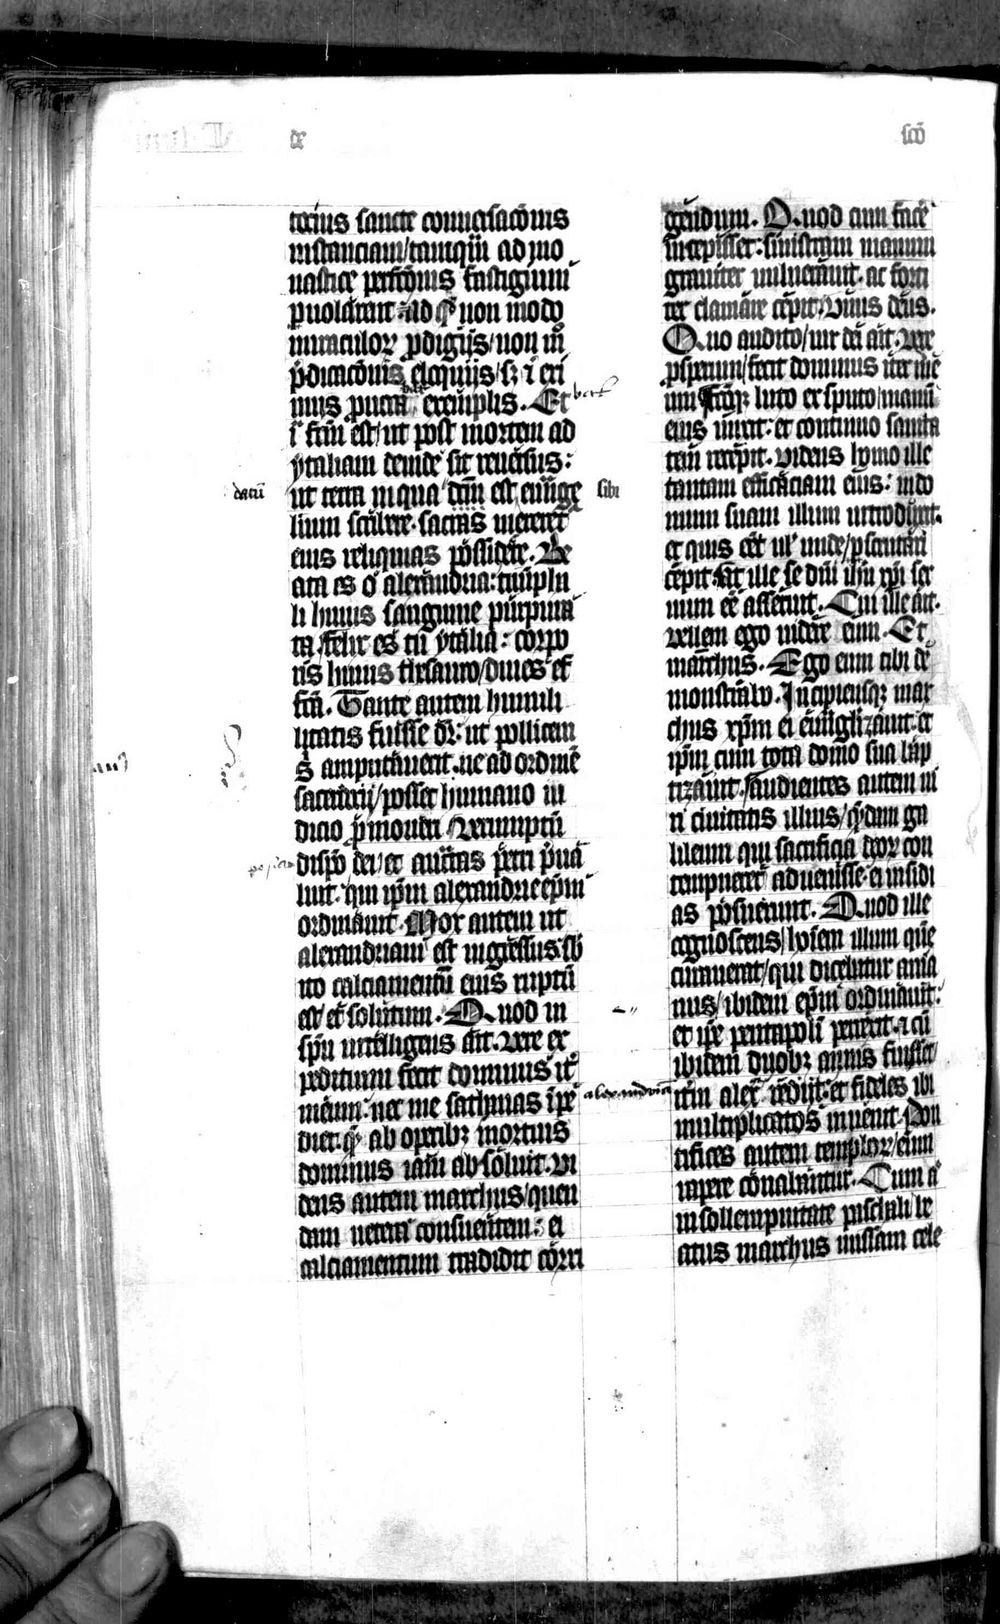 de
scō
terius sancte conuersacōnis
instanciam/tamqͣm ad mo
nastice perfcōnis fastigium
puolarent. ad qͦ non modo
miraculoꝝ ꝓdigijs/non mͦ
p̄dicacōnis eloquijs/sꝫ ī exi
mijs
exemplis. Et
ī fcm̄ est/ut post mortem ad
ytaliam deinde sit reuersus:
datū
ut terra in qua dcm̄ est euͣnge
sibi
lium scͥbere. sacras meretͬ
eius reliquias possidere. Be
ata es o alexandria: triūphā
li huius sanguine purpura
ta/felix es tu ytalia: corpo
ris huius thesauro/diues ef
fcā. Tante autem humili
litatis fuisse dr̄: ut pollicem
sͥ amputauerit. ne ad ordinē
sacerdocij/posset humano iu
dicio ꝓmoueri Verumptn̄
dispō dei/et auctͣs petri p̄ua
luit. qui ip̄m alexandrie ep̄m
ordinauit. Mox autem ut
alexandriam est ingressus. sb̄
ito calciamentū eius ruptū
est/et solutum. Quod in
spū intelligens ait. vere ex
peditum fecit dominus itͬ
meum. nec me sathanas īpe
diet. qͤ ab operibꝫ mortuis
dominus iam absoluit. vi
dens autem marchus/quen
dam uetera consuentem: ei
calciamentum tradidit corri
gendum. Quod cum facē
incepisset: sinistram manum
grauiter uulnerauit. ac forti
ter clamare cepit. Vnus deus.
Quo audito/uir dei ait. vere
ꝓsperum/fecit dominus iter me
um
luto ex sputo/manū
eius unxit: et continuo sanita
tem recepit. videns homo ille
tantam efficaciam eius: indo
mum suam illum introduxit.
et quis eēt ul̄ unde/pscrutari
cepit. At ille se dnī ihū xpī ser
uum eē asseruit. Cui ille ait.
vellem ego videre eum. Et
marchus. Ego eum tibi de
monstrabo. Incipiensqꝫ mar
chus xpm̄ ei euͣnglizauit. et
ip̄m cum tota domo sua bap
tizauit. Audientes autem ui
ri ciuitatis illius/qͤdam ga
lileum qui sacrificia deoꝝ con
tempneret/aduenisse. ei insidi
as posuerunt. Quod ille
cognoscens/hoīem illum quē
curauerat/qui dicebatur ania
nus/ibidem ep̄m ordinauit:
et ip̄e pentapolī perrexit. ⁊ cū
ibidem duobꝫ annis fuisset/
alexandriam
itm̄ alex̄ rediit. et fideles ibi
multiplicatos inuenit. Pon
tifices autem temploꝝ/eum
capere conabantur. Cum aͭ
in sollempnitate paschali/be
atus marchus missam cele